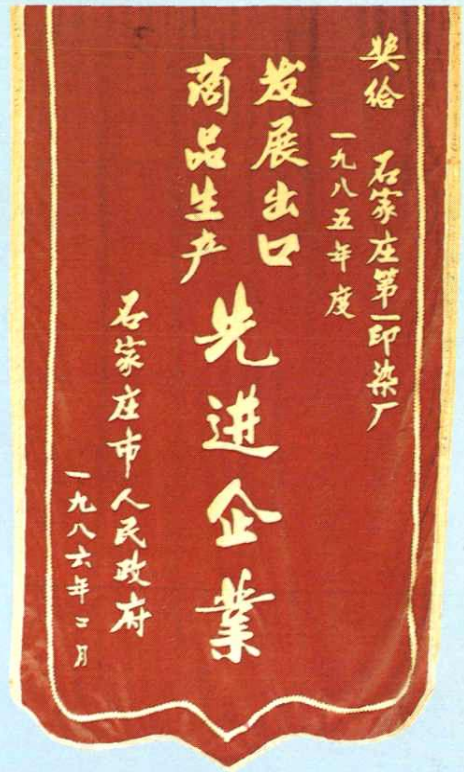 奖给 石家庄第一印染厂
一九八五年度
发展出口
商品生产
先进企業
石家庄市人民政府
一九八六年二月